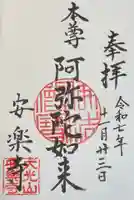 奉拝
令和七年
十二月廿三日
本尊
阿弥陀如来
安楽寺